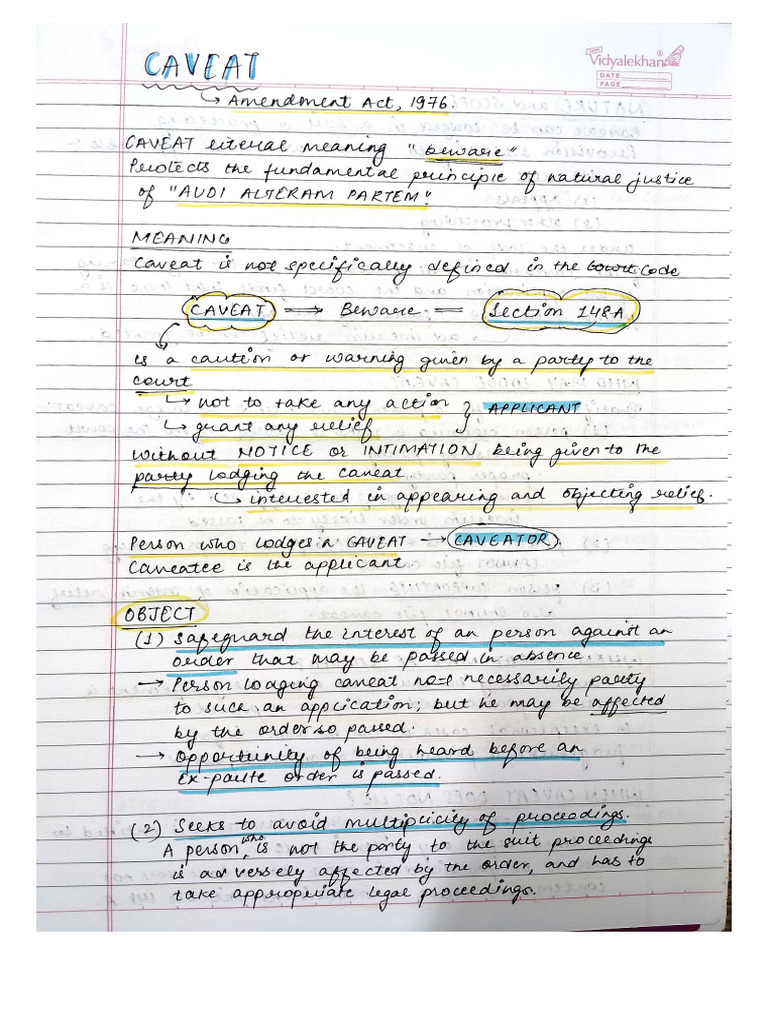 Vidyalekhan
DATE
PAGE
CAVEAT
↳ Amendment Act, 1976.
CAVEAT literal meaning "beware"
Protects the fundamental principle of natural justice
of "AUDI ALTERAM PARTEM".
MEANING
Caveat is not specifically defined in the Code
CAVEAT ⟹ Beware = Section 148-A
is a caution or warning given by a party to the
court
↳ not to take any action } APPLICANT
↳ grant any relief
without NOTICE or INTIMATION being given to the
party lodging the caveat.
↳ interested in appearing and objecting relief.
Person who lodges a CAVEAT → CAVEATOR
Caveatee is the applicant
OBJECT
(1) Safeguard the interest of an person against an
order that may be passed in absence.
→ Person loaging caveat not necessarily party
to such an application; but he may be affected
by the order so passed.
→ Opportunity of being heard before an
Ex-parte order is passed.
(2) Seeks to avoid multipcicity of proceedings.
A person who is not the party to the suit proceedings
is adversely affected by the order, and has to
take appropriate legal proceedings.